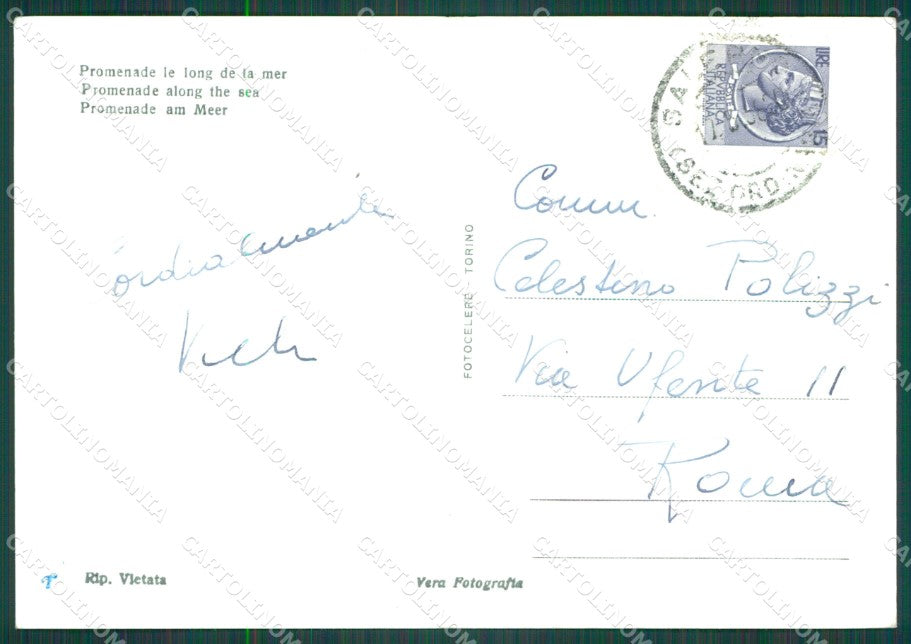 Promenade le long de la mer
Promenade along the sea
Promenade am Meer
LIRE 15
POSTE
REPVBBLICA
ITALIANA
Cordialmente
FOTOCELERE - TORINO
Comm.
Celestino Polizzi
Via Ufente 11
Roma
Rip. Vietata
Vera Fotografia
CARTOLINOMANIA